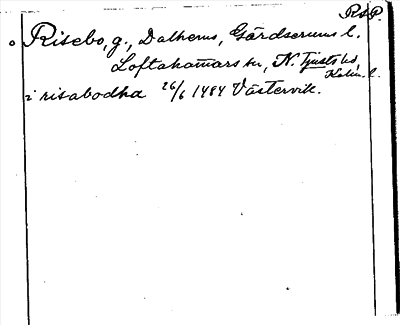 RSP.
o Risebo, g., Dalhems, Gärdserums l.
Loftahammars sn, N. Tjusts hd,
Kalm. l.
i risabodha 26/6 1484 Västervik.